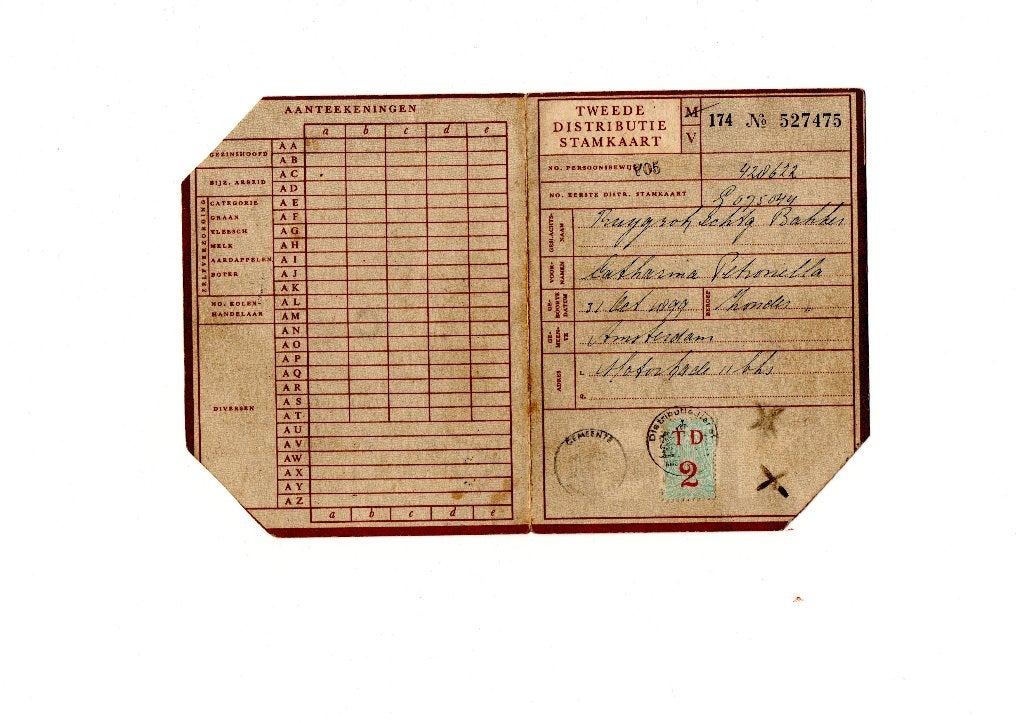 AANTEEKENINGEN
a b c d e
GEZINSHOOFD
AA
AB
BIJZ. ARBEID
AC
AD
ZELFVERZORGING
CATEGORIE AE
GRAAN AF
VLEESCH AG
MELK AH
AARDAPPELEN AI
BOTER AJ
AK
NO. KOLEN-
HANDELAAR
AL
AM
AN
AO
AP
AQ
AR
AS
DIVERSEN
AT
AU
AV
AW
AX
AY
AZ
a b c d e
TWEEDE
DISTRIBUTIE
STAMKAART
M
V
174 No 527475
NO. PERSOONSBEWIJS 428622
NO. EERSTE DISTR. STAMKAART 075044
GESLACHTS-
NAAM
VOOR-
NAMEN
Catharina Petronella
GE-
BOORTE
DATUM
31 Oct 1899
BEROEP
Zonder
GE-
MEEN-
TE
Amsterdam
ADRES
1. 11 hs
2.
GEMEENTE
TD
2